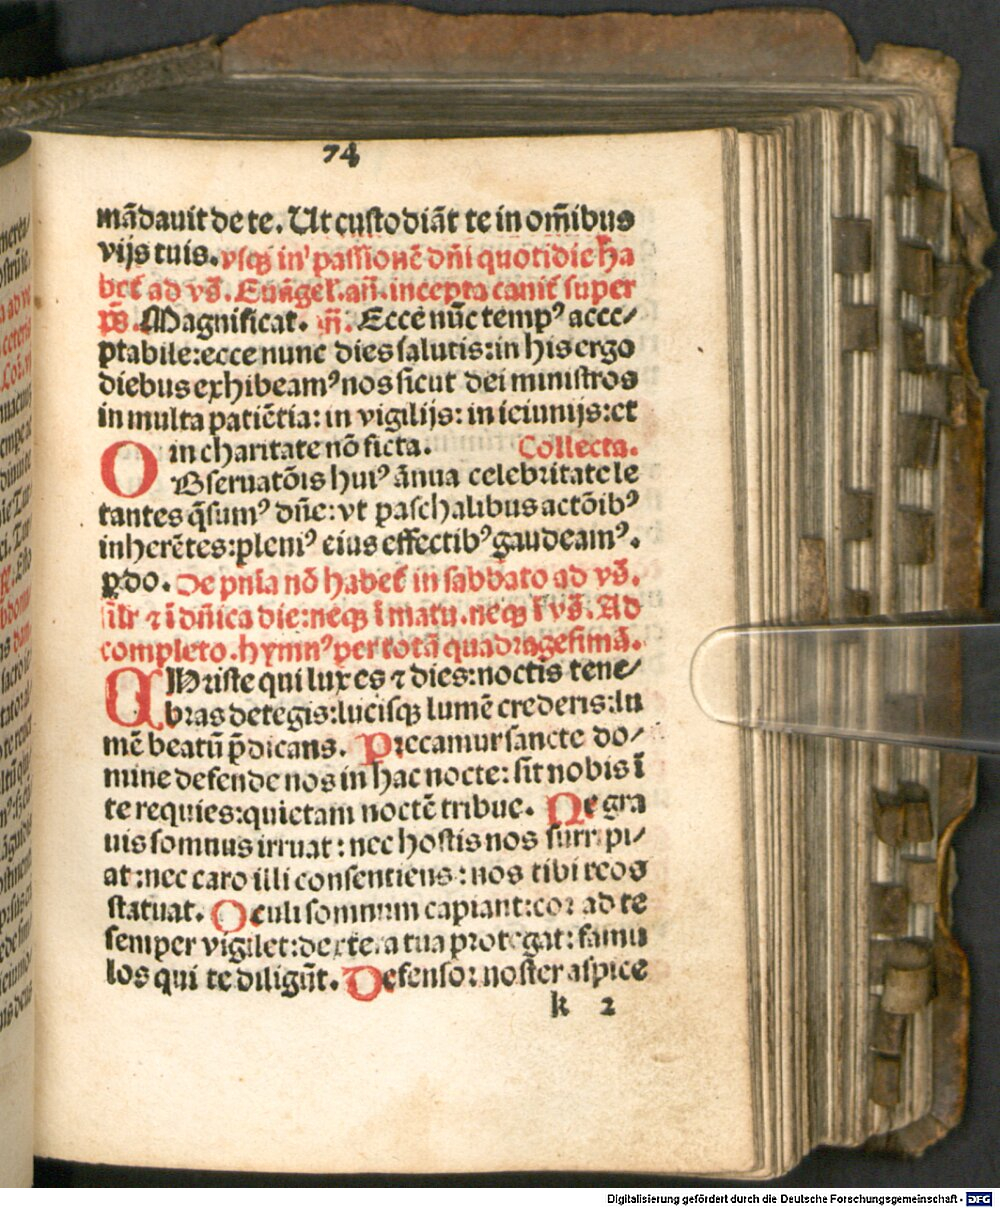 74
mãdauit de te. Ut custodiãt te in om̃ibus
vijs tuis. vsq̃ in passionẽ dñi quotidie ha
bet̃ ad vs̃. Euãngel. añ. incepta canit̃ super
ps̃. Magnificat. añ. Ecce nũc tempꝰ acce/
ptabile: ecce nunc dies salutis: in his ergo
diebus exhibeamꝰ nos sicut dei ministros
in multa patiẽtia: in vigilijs: in ieiunijs: et
in charitate nõ ficta. Collecta.
OBseruatõis huiꝰ ãnua celebritate le
tantes q̃sumꝰ dñe: vt paschalibus actõibꝰ
inherẽtes: plemꝰ eius effectibꝰ gaudeamꝰ.
ꝑ do. De pñia nõ habet̃ in sabbato ad vs̃.
sil̃r ⁊ ĩ dñica die: neqꝫ ĩ matu. neqꝫ ĩ vs̃. Ad
completo. hymnꝰ per totã quadragesimã.
CHriste qui lux es ⁊ dies: noctis tene/
bras detegis: lucisqꝫ lumẽ crederis: lu
mẽ beatũ p̃dicans. Precamur sancte do/
mine defende nos in hac nocte: sit nobis ĩ
te requies: quietam noctẽ tribue. Ne gra
uis somnus irruat: nec hostis nos surripi/
at: nec caro illi consentiens: nos tibi reos
statuat. Oculi somnum capiant: cor ad te
semper vigilet: dextera tua protegat: famu
los qui te diligũt. Defensor noster aspice
k 2
Digitalisierung gefördert durch die Deutsche Forschungsgemeinschaft - DFG